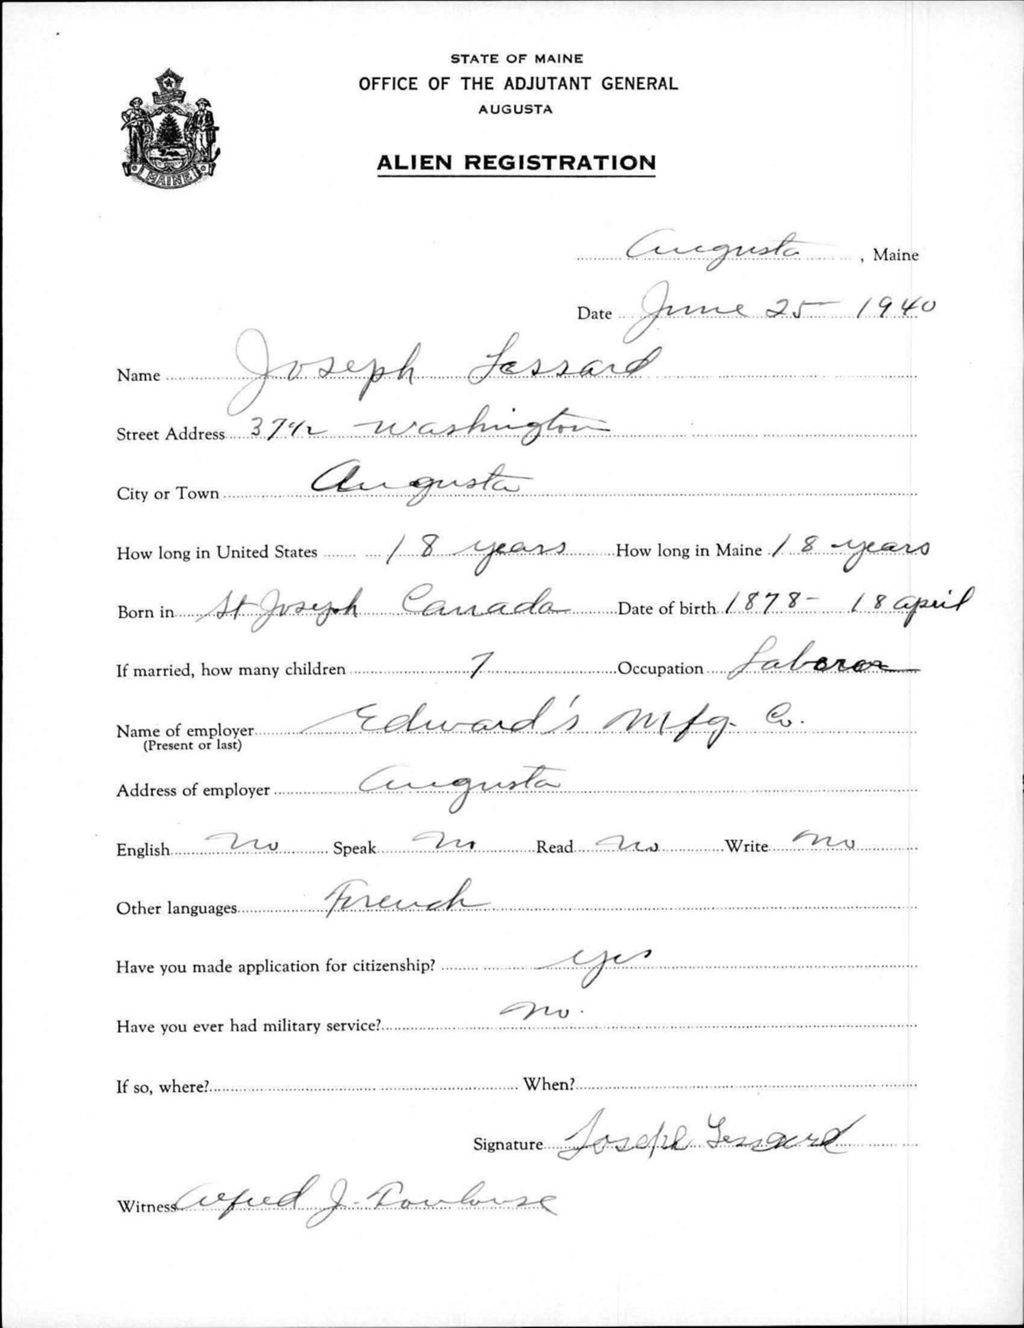 STATE OF MAINE
OFFICE OF THE ADJUTANT GENERAL
AUGUSTA
ALIEN REGISTRATION
MAINE
Augusta, Maine
Date June 25 1940
Name Joseph Lessard
Street Address Washington
City or Town Augusta
How long in United States 18 years How long in Maine 18 years
Born in St Joseph Canada Date of birth 1878 - 18 april
If married, how many children 7 Occupation Laboror
Name of employer Edward's Mfg. Co.
(Present or last)
Address of employer Augusta
English No Speak No Read No Write No
Other languages French
Have you made application for citizenship? yes
Have you ever had military service? no.
If so, where? When?
Signature Joseph Lessard
Witness Alfred J. Toulouse